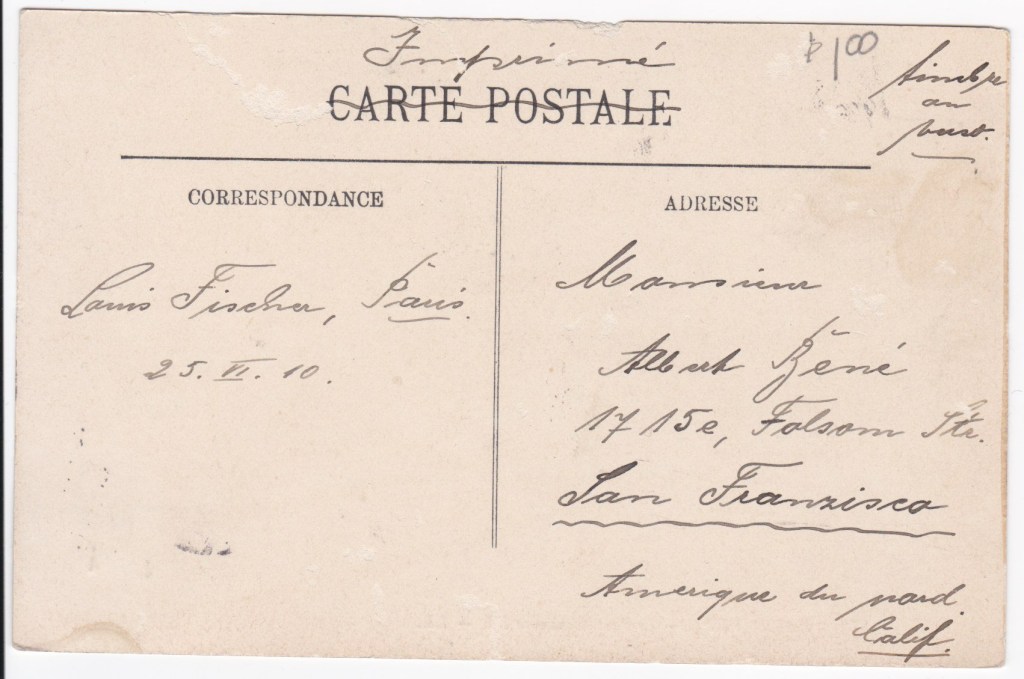 Imprimé
$1.00
CARTE POSTALE
timbre
au
verso.
CORRESPONDANCE
ADRESSE
Louis Fischer, Paris.
25. VI. 10.
Monsieur
Albert René
1715e, Folsom Str.
San Franzisco
Amerique du nord.
Calif.